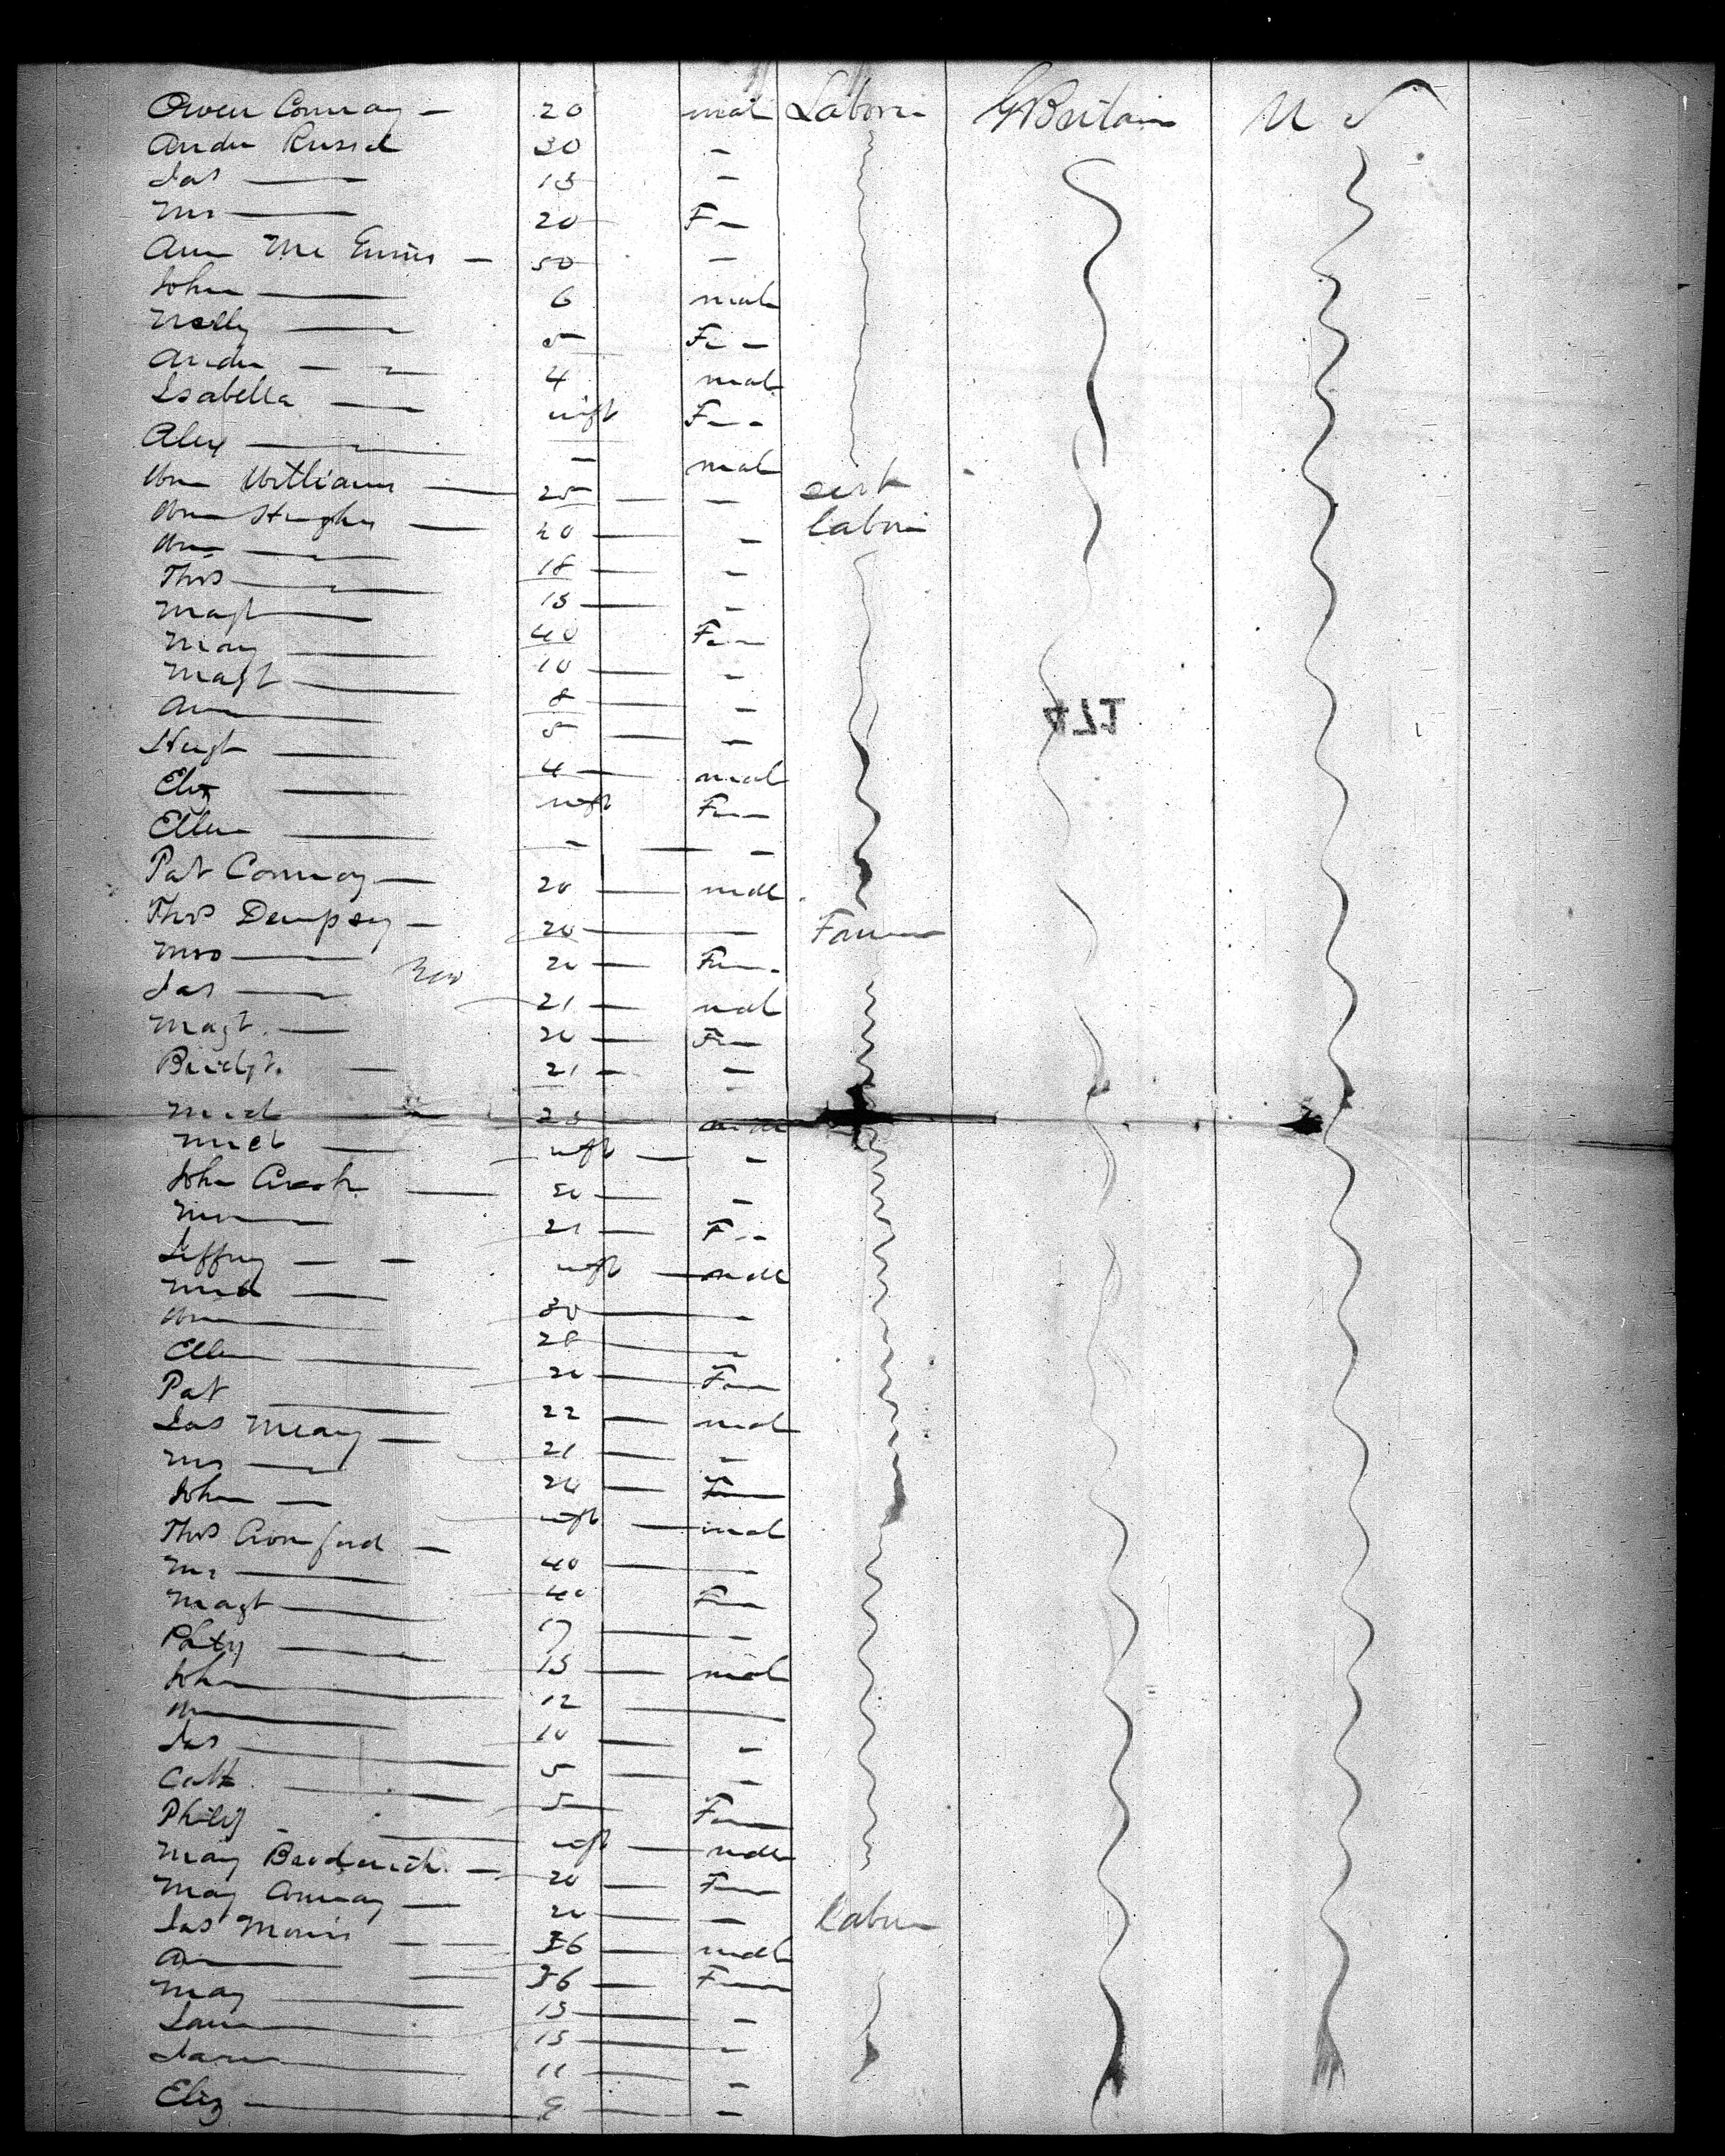 Owen Conway 20 mal Labor G Britain U S
Andw Russel 30
Jas 13
Mrs 20 F
Ann Mc Ginnis 50
John 6 mal
Nelly 5 F
Andw 4 mal
Isabella inft F
Alex mal
Wm Williams 25
Wm Hughes 40 Labor
Wm 18
Thos 15
Magt 40 F
May 10
Magt 8
Ann 5
Hugh 4 mal
Eliz inft F
Ellen
Pat Conway 20 mal
Thos Dempsey 20 Farmer
Mrs 20 Fem
Jas 21 mal
Magt. 20 Fem
Bridgt. 21
Mich 23
Mich inft
John
Mrs 21 F
Jeffrey inft mal
Mich 30
Wm 28
Ellen 20 Fem
Pat 22 mal
Jas Meany 21
Mrs 20 Fem
John inft mal
Thos Crawford 40
Mrs 40 Fem
Magt 17
Patry 15 mal
John 12
Wm 10
Jas 5
Cath 5 Fem
Philip inft mal
May Broderick 20 Fem
May Conway 20 Labor
Jas Morris 36 mal
Ann 36 Fem
May 15
Jane 13
11
Eliz
174